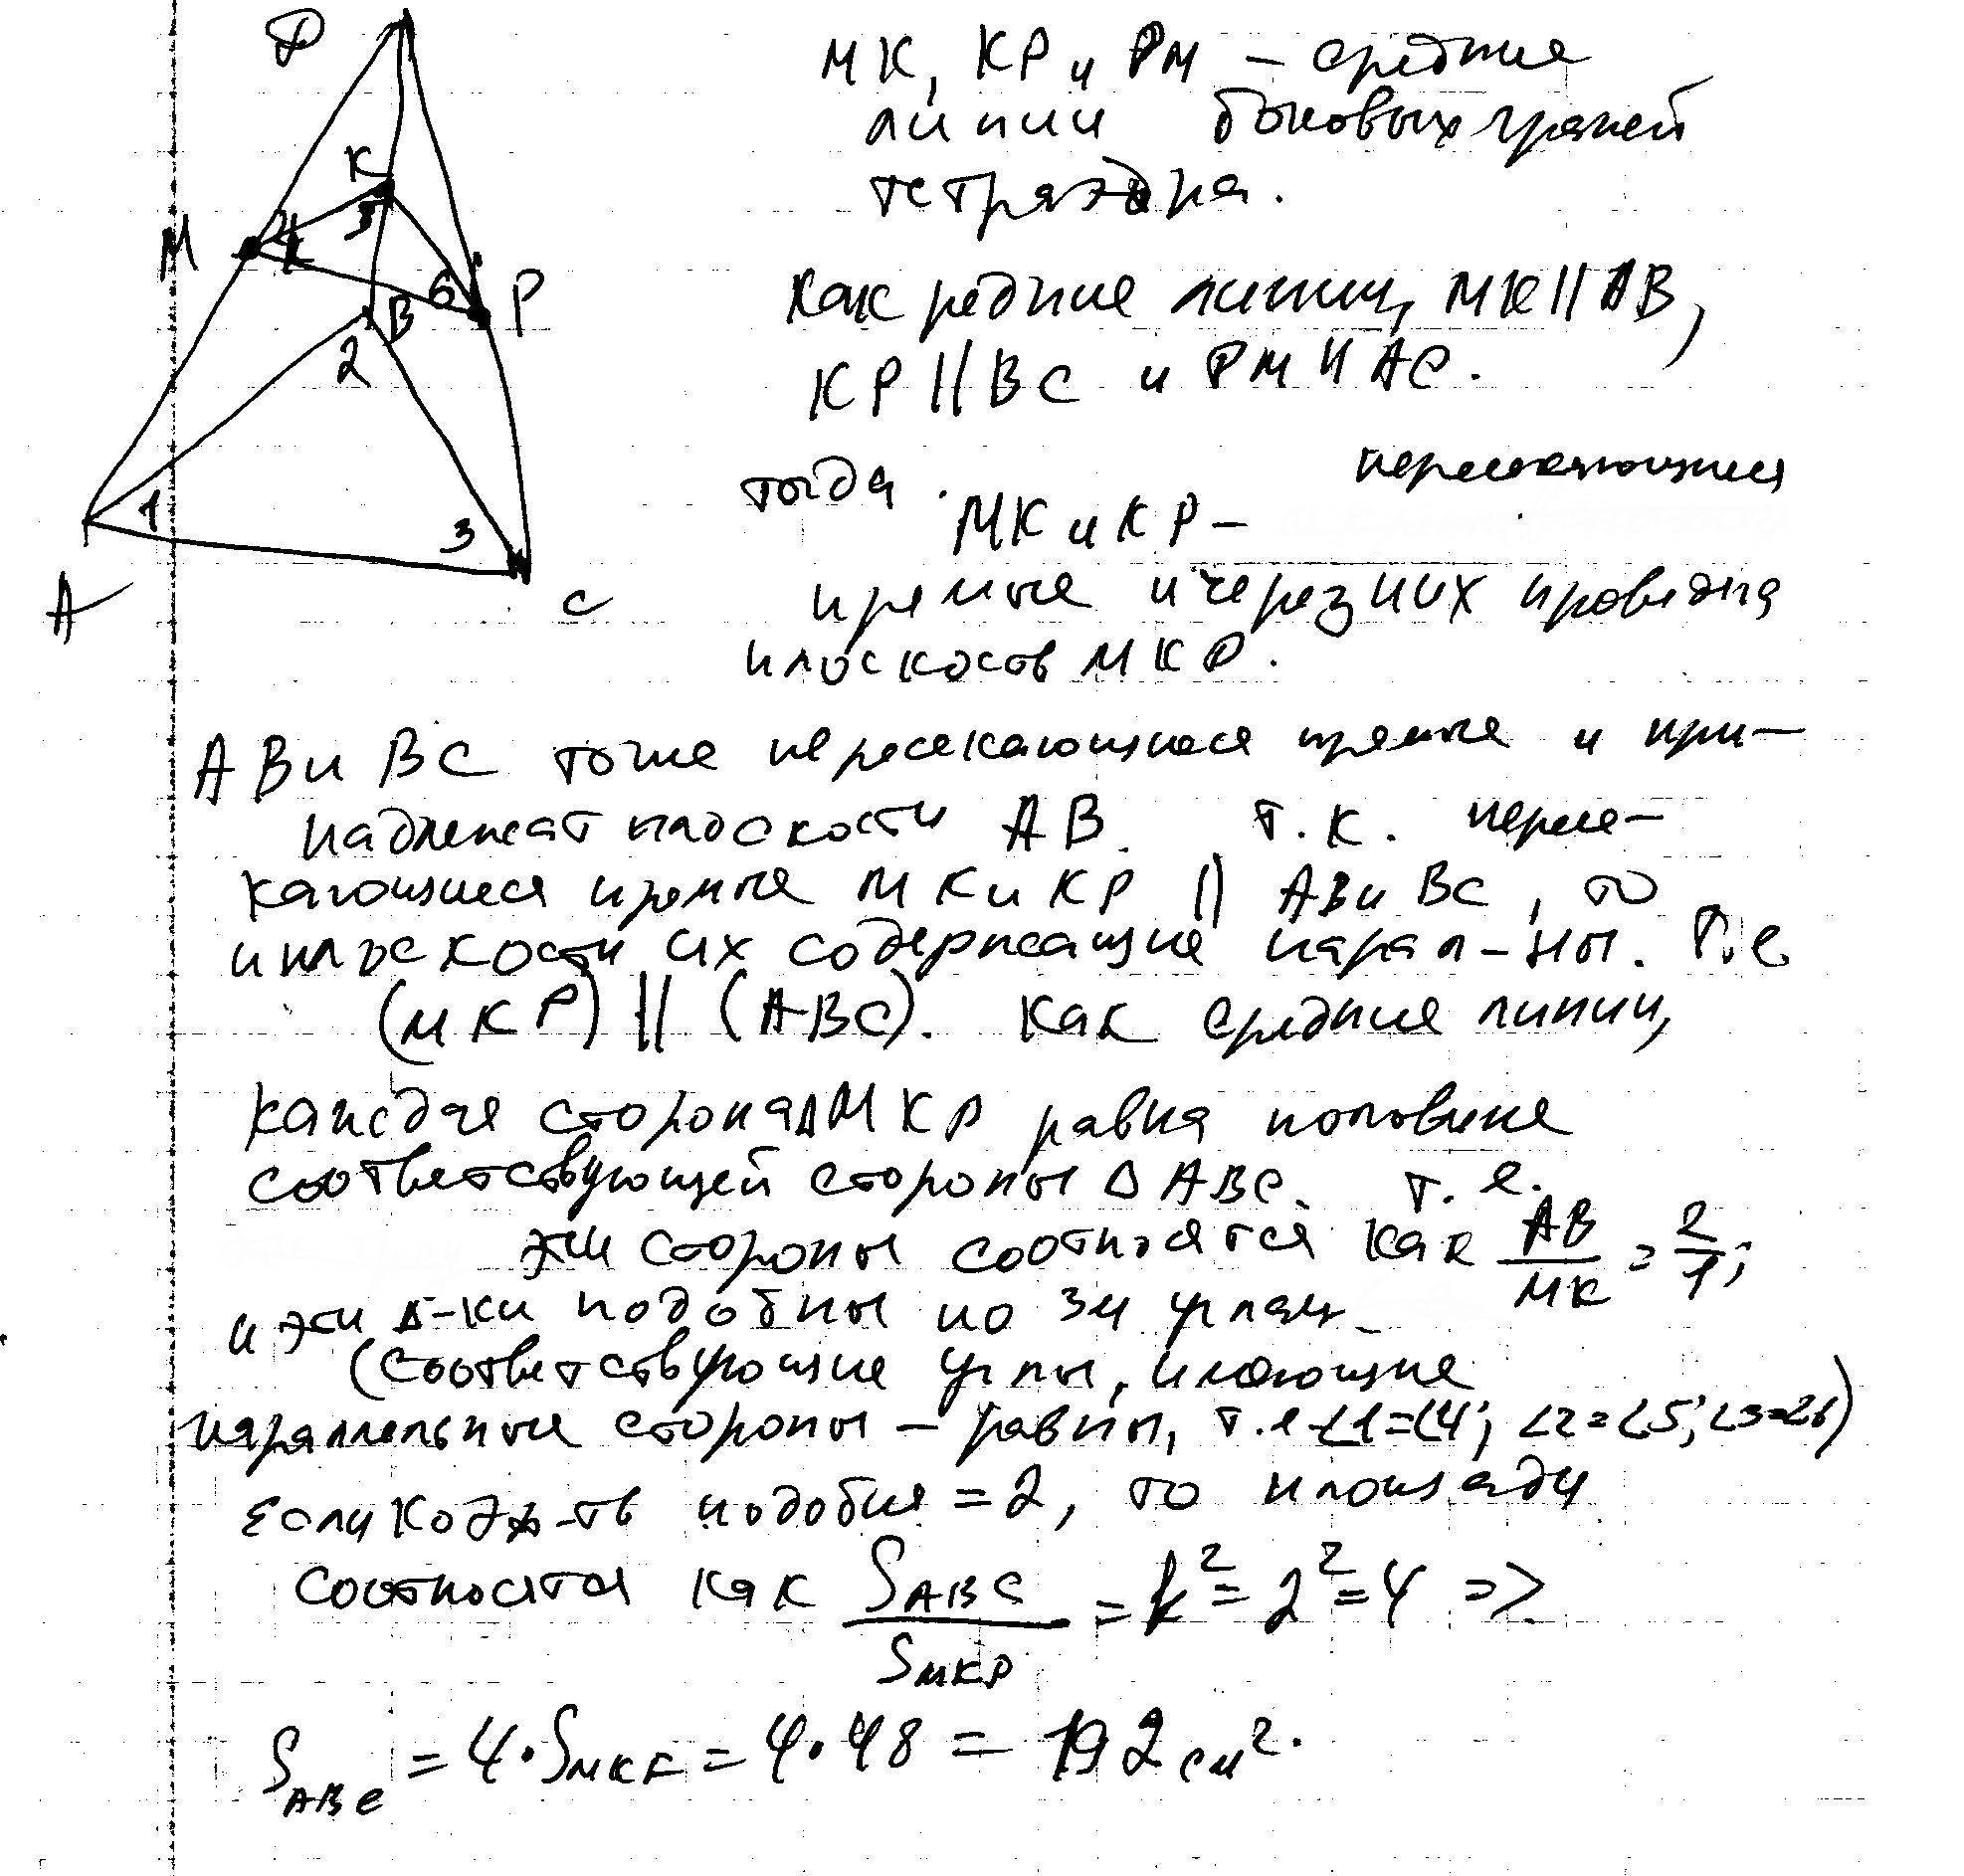 D
K
M
4
5
6
P
B
2
1
3
A
C
МК, КР и РМ – средние
линии боковых граней
тетраэдра.
Как редние линии, МК || АВ,
КР || ВС и РМ || АС.
тогда. пересекающиеся
МК и КР –
прямые и через них проведена
плоскость МКР.
АВ и ВС тоже пересекающиеся прямые и при-
надлежат плоскости АВ. т.к. пересе-
кающиеся прямые МК и КР || АВ и ВС, то
и плоскости их содержащие парал-ны. Т.е.
(МКР) || (АВС). Как средние линии,
каждая сторона Δ МКР равна половине
соответствующей стороны Δ АВС. т.е.
эти стороны соотносятся как АВ/МК = 2/1;
и эти Δ-ки подобны по 3м углам.
(соответствующие углы, имеющие
параллельные стороны – равны, т.е ∠1=∠4; ∠2=∠5; ∠3=∠6)
Если коэф-ть подобия = 2, то площади
соотносятся как S ABC / S МКР = k² = 2² = 4 =>
S ABC = 4·S МКР = 4·48 = 192 см².